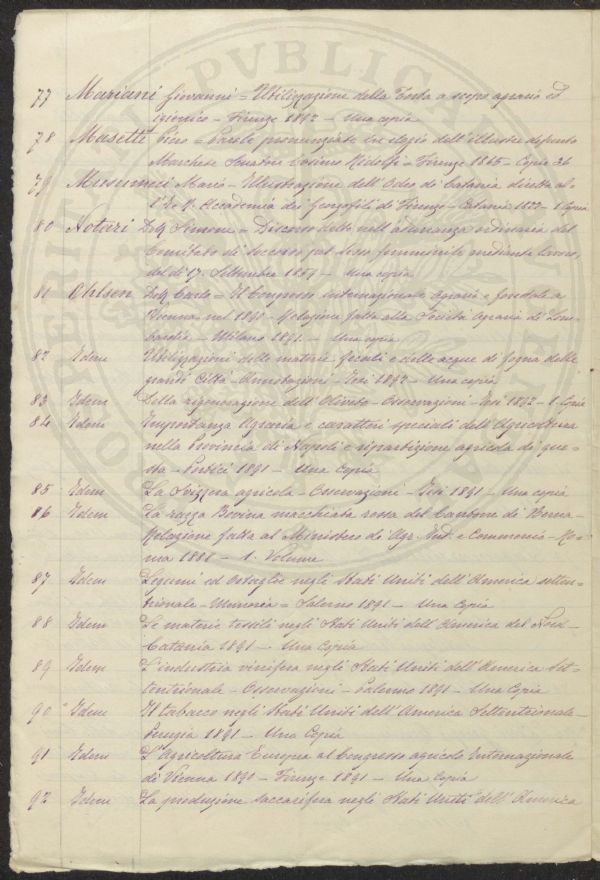 PVBLICAE
77 Mariani Giovanni = Utilizzazione della Torba a scopo agrario ed
igienico - Firenze 1892 - Una copia
78 Musetti Piero = Parole pronunziate in elogio dell'illustre defunto
Marchese Senatore Cosimo Ridolfi - Firenze 1865 - Copie 26
79 Musumeci Mario - Illustrazione dell'Odeo di Catania diretta al-
l'I. e R. Accademia dei Georgofili di Firenze - Catania 1822 - 1 Copia
80 Notari Dott. Simone - Discorso detto nell'adunanza ordinaria del
Comitato di soccorso pel sesso femminile mediante lavoro,
del dì 17 Settembre 1854 - Una copia
81 Ohlsen Dott. Carlo = Il Congresso internazionale Agrario e forestale a
Vienna nel 1890 - Relazione fatta alla Società Agraria di Lom-
bardia - Milano 1891 - Una copia
82 Idem Utilizzazioni delle materie fecali e delle acque di fogna delle
grandi Città - Annotazioni - Jesi 1892 - Una copia
83 Idem Della rigenerazione dell'Oliveto - Osservazioni - Jesi 1892 - 1 Copia
84 Idem Importanza Agraria e caratteri speciali dell'Agricoltura
nella Provincia di Napoli e ripartizione agricola di que-
sta - Portici 1891 - Una Copia
85 Idem La Svizzera agricola - Osservazioni - Jesi 1891 - Una copia
86 Idem La razza Bovina macchiata rossa del Cantone di Berna -
Relazione fatta al Ministero di Agr. Ind. e Commercio - Ro-
ma 1888 - 1. Volume
87 Idem Legumi ed Ortaglie negli Stati Uniti dell'America setten-
trionale - Memoria = Salerno 1891 - Una Copia
88 Idem Le materie tessili negli Stati Uniti dell'America del Nord -
Catania 1891 - Una Copia
89 Idem L'industria vinifera negli Stati Uniti dell'America Set-
tentrionale - Osservazioni - Palermo 1891 - Una Copia
90 Idem Il tabacco negli Stati Uniti dell'America Settentrionale -
Perugia 1891 - Una Copia
91 Idem L'Agricoltura Europea al Congresso agricolo Internazionale
di Vienna 1890 - Firenze 1891 - Una Copia
92 Idem La produzione saccarifera negli Stati Uniti dell'America